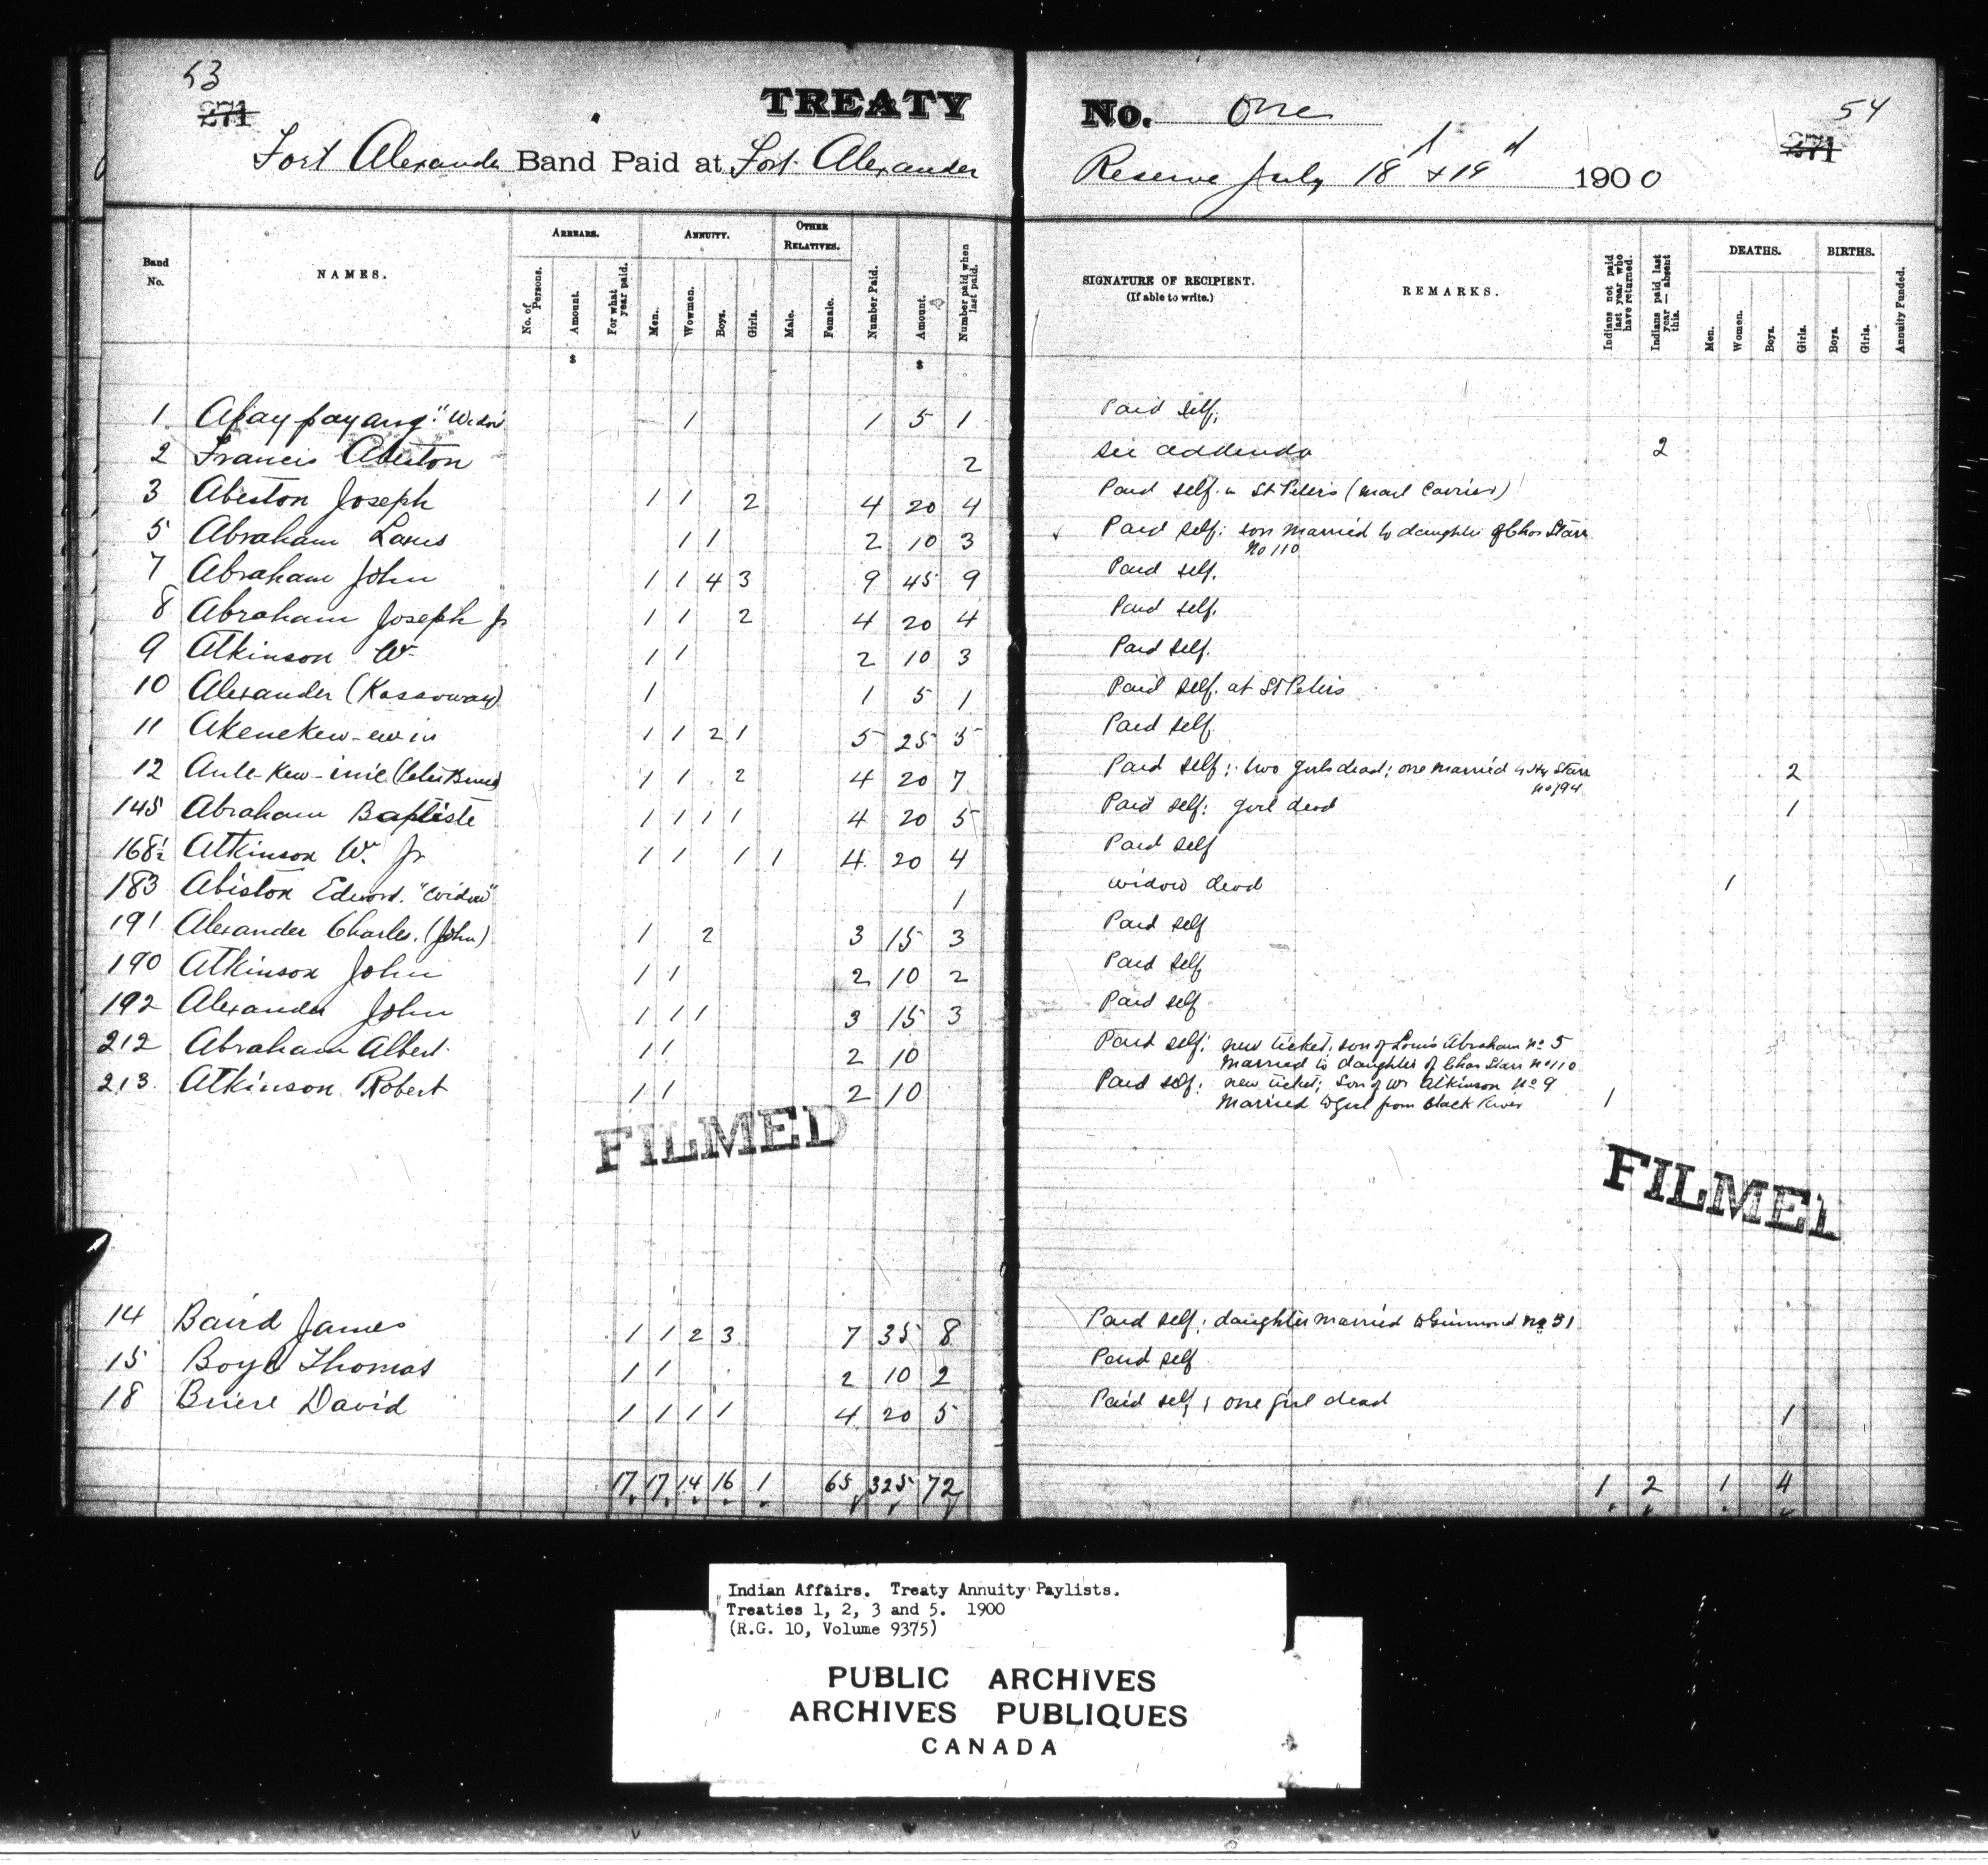 53
271
TREATY No. One
54
271
Fort Alexander Band Paid at Fort Alexander Reserve July 18 & 19 1900
Band No.
NAMES.
ARREARS.
No. of Persons.
Amount.
For what year paid.
ANNUITY.
Men.
Wowmen.
Boys.
Girls.
OTHER RELATIVES.
Male.
Female.
Number Paid.
Amount.
Number paid when last paid.
SIGNATURE OF RECIPIENT. (If able to write.)
REMARKS.
Indians not paid last year who have returned.
Indians paid last year — absent this.
DEATHS.
Men.
Women.
Boys.
Girls.
BIRTHS.
Boys.
Girls.
Annuity Funded.
$ $
1 "Widow" 1 1 5 1 Paid self.
2 Francis Abeston 2 See addenda 2
3 Abeston Joseph 1 1 2 4 20 4 Paid self in St Peters (mail Carrier)
5 Abraham Louis 1 1 2 10 3 Paid self: son married to daughter of Chas Starr No 110
7 Abraham John 1 1 4 3 9 45 9 Paid self.
8 Abraham Joseph Jr 1 1 2 4 20 4 Paid self.
9 Atkinson W. 1 1 2 10 3 Paid self.
10 Alexander (Kassoway) 1 1 5 1 Paid self. at St Peters
11 Akenekew-ewin 1 1 2 1 5 25 5 Paid self.
12 1 1 2 4 20 7 Paid self: two girls dead; one married to Starr No 194 2
145 Abraham Baptiste 1 1 1 1 4 20 5 Paid self: girl dead 1
168½ Atkinson W. Jr 1 1 1 1 4 20 4 Paid self
183 Abiston Edward. "Widow" 1 Widow dead 1
191 Alexander Charles. (John) 1 2 3 15 3 Paid self
190 Atkinson John 1 1 2 10 2 Paid self
192 Alexander John 1 1 1 3 15 3 Paid self
212 Abraham Albert. 1 1 2 10 Paid self: new ticket, son of Louis Abraham No 5
Married to daughter of Chas Starr No 110
213. Atkinson Robert 1 1 2 10 Paid self: new ticket; son of Wm Atkinson No 9
Married to girl from Black River 1
FILMED
FILMED
14 Baird James 1 1 2 3 7 35 8 Paid self: daughter married to Guimond No 31
15 Boyd Thomas 1 1 2 10 2 Paid self
18 Briere David 1 1 1 1 4 20 5 Paid self; one girl dead 1
17 17 14 16 1 65 325 72 1 2 1 4
Indian Affairs. Treaty Annuity Paylists.
Treaties 1, 2, 3 and 5. 1900
(R.G. 10, Volume 9375)
PUBLIC ARCHIVES
ARCHIVES PUBLIQUES
CANADA